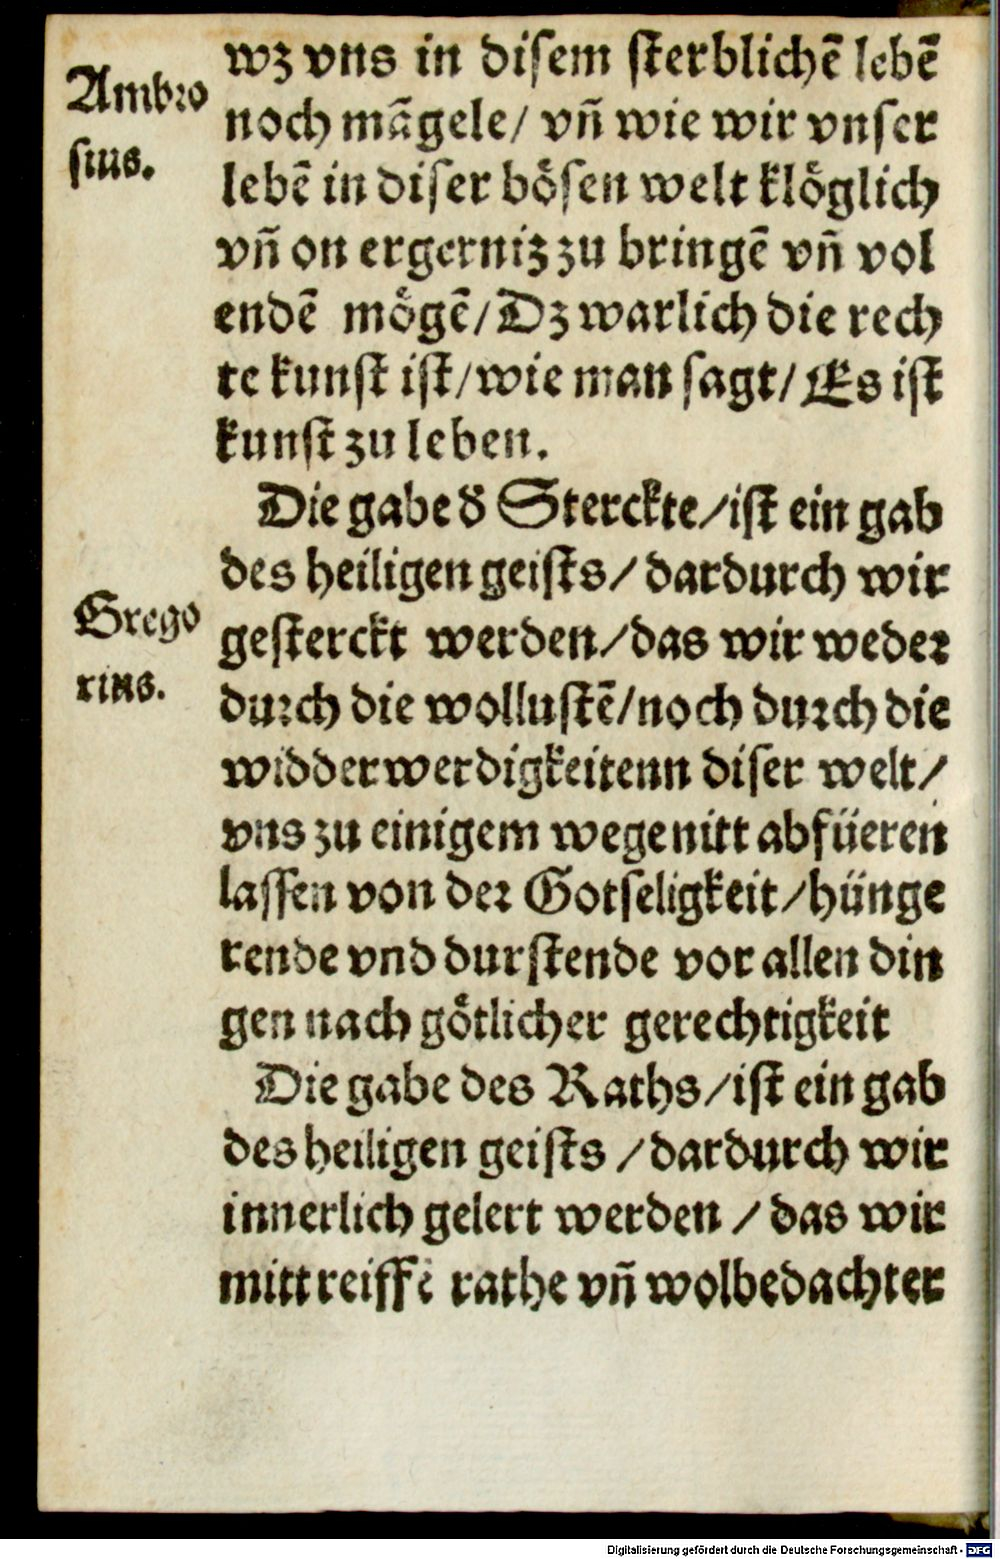 Ambro
sius.
wz vns in disem sterblichē lebē
noch māgele/ vñ wie wir vnser
lebē in diser bösen welt klöglich
vñ on ergerniz zu bringē vñ vol
endē mögē/ Dz warlich die rech
te kunst ist/ wie man sagt/ Es ist
kunst zu leben.
Die gabe d̄ Sterckte/ ist ein gab
des heiligen geists/ dardurch wir
Grego
rius.
gesterckt werden/ das wir weder
durch die wollustē/ noch durch die
widderwerdigkeitenn diser welt/
vns zu einigem wege nitt abfüeren
lassen von der Gotseligkeit/ hünge
rende vnd durstende vor allen din
gen nach götlicher gerechtigkeit
Die gabe des Raths/ ist ein gab
des heiligen geists / dardurch wir
innerlich gelert werden / das wir
mitt reiffē rathe vñ wolbedachter
Digitalisierung gefördert durch die Deutsche Forschungsgemeinschaft - DFG